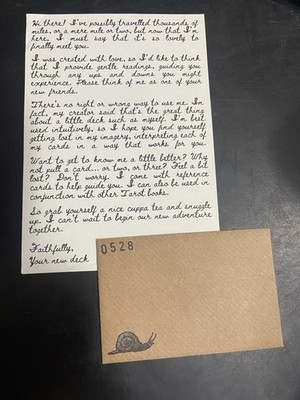 Hi there! I've possibly travelled thousands of
miles, or a mere mile or two, but now that I'm
here, I must say that it's so lovely to
finally meet you.
I was created with love, so I'd like to think
that I provide gentle readings, guiding you
through any ups and downs you might
experience. Please think of me as one of your
new friends.
There's no right or wrong way to use me. In
fact, my creator said that's the great thing
about a little deck such as myself. I'm best
used intuitively, so I hope you find yourself
getting lost in my imagery, interpreting each of
my cards in a way that works for you.
Want to get to know me a little better? Why
not pull a card... or two, or three? Feel a bit
lost? Don't worry, I come with reference
cards to help guide you. I can also be used in
conjunction with other Tarot books.
So grab yourself a nice cuppa tea and snuggle
up. I can't wait to begin our new adventure
together.
Faithfully,
Your new deck
0528